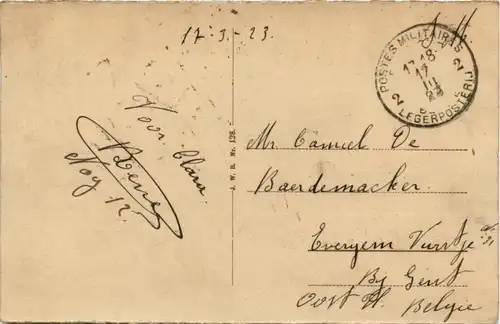 17-3-23
POSTES MILITAIRES
17-18
17
III
23
2 2
LEGERPOSTERIJ
Voor Clara.
Nog 12.
J. W. B. Nr. 128.
Mr Camiel De
Baerdemacker.
Evergem Vurstje
By Gent
Oost Vl. Belgie